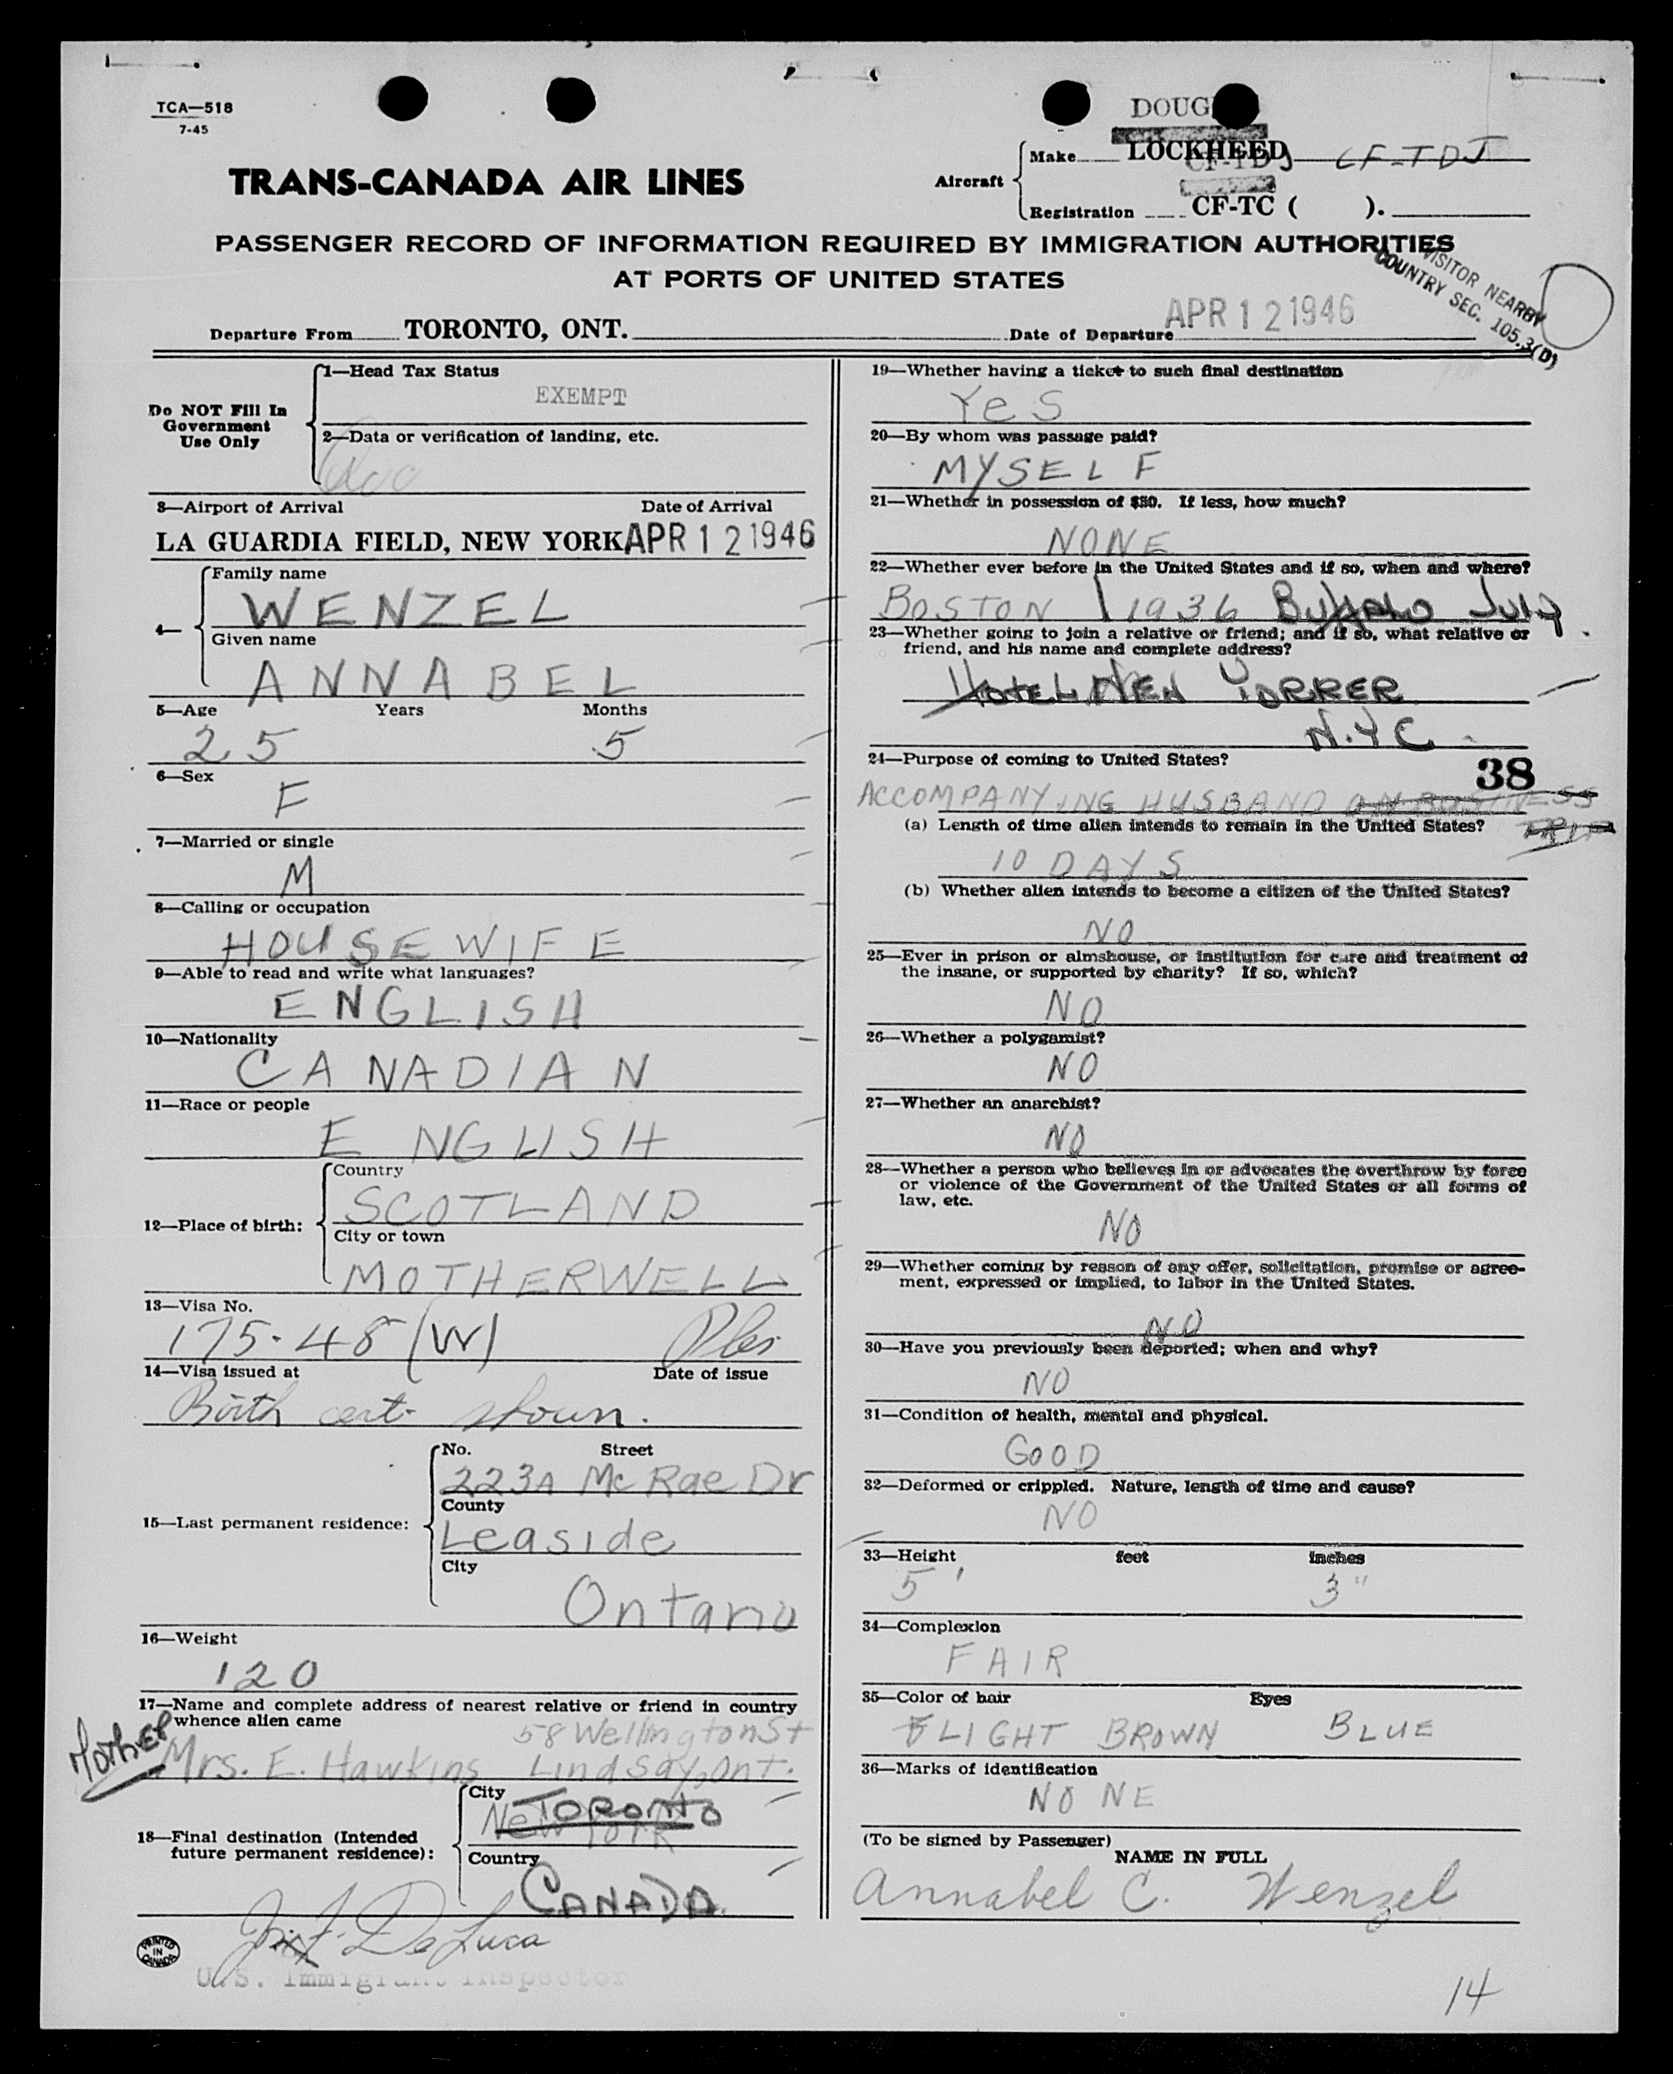 TCA—518
7-45
DOUG
Aircraft
Make LOCKHEED CF-TDJ
CF-TD
Registration CF-TC ( ).
TRANS-CANADA AIR LINES
PASSENGER RECORD OF INFORMATION REQUIRED BY IMMIGRATION AUTHORITIES
AT PORTS OF UNITED STATES
VISITOR NEARBY
COUNTRY SEC. 105.3(D)
D
Departure From TORONTO, ONT. Date of Departure APR 12 1946
Do NOT Fill In
Government
Use Only
1—Head Tax Status
EXEMPT
2—Data or verification of landing, etc.
3—Airport of Arrival Date of Arrival
LA GUARDIA FIELD, NEW YORK APR 12 1946
4—
Family name
WENZEL
Given name
ANNABEL
5—Age Years Months
25 5
6—Sex
F
7—Married or single
M
8—Calling or occupation
HOUSEWIFE
9—Able to read and write what languages?
ENGLISH
10—Nationality
CANADIAN
11—Race or people
ENGLISH
12—Place of birth:
Country
SCOTLAND
City or town
MOTHERWELL
13—Visa No.
175-48 (W)
14—Visa issued at Date of issue
Birth cert. shown.
15—Last permanent residence:
No. Street
223A McRae Dr
County
Leaside
City
Ontario
16—Weight
120
17—Name and complete address of nearest relative or friend in country
whence alien came
58 Wellington St
Mother
Mrs. E. Hawkins Lindsay, Ont.
18—Final destination (Intended
future permanent residence):
City
TORONTO
New York
Country
CANADA
DeLuca
U.S. Immigrant Inspector
PRINTED
IN
CANADA
19—Whether having a ticket to such final destination
Yes
20—By whom was passage paid?
MYSELF
21—Whether in possession of $50. If less, how much?
NONE
22—Whether ever before in the United States and if so, when and where?
BOSTON 1936 Buffalo July
23—Whether going to join a relative or friend; and if so, what relative or
friend, and his name and complete address?
HOTEL NEW YORKER
N.Y.C.
24—Purpose of coming to United States?
38
ACCOMPANYING HUSBAND ON BUSINESS
TRIP
(a) Length of time alien intends to remain in the United States?
10 DAYS
(b) Whether alien intends to become a citizen of the United States?
NO
25—Ever in prison or almshouse, or institution for care and treatment of
the insane, or supported by charity? If so, which?
NO
26—Whether a polygamist?
NO
27—Whether an anarchist?
NO
28—Whether a person who believes in or advocates the overthrow by force
or violence of the Government of the United States or all forms of
law, etc.
NO
29—Whether coming by reason of any offer, solicitation, promise or agree-
ment, expressed or implied, to labor in the United States.
NO
30—Have you previously been deported; when and why?
NO
31—Condition of health, mental and physical.
GOOD
32—Deformed or crippled. Nature, length of time and cause?
NO
33—Height feet inches
5' 3"
34—Complexion
FAIR
35—Color of hair Eyes
LIGHT BROWN BLUE
36—Marks of identification
NONE
(To be signed by Passenger)
NAME IN FULL
Annabel C. Wenzel
14